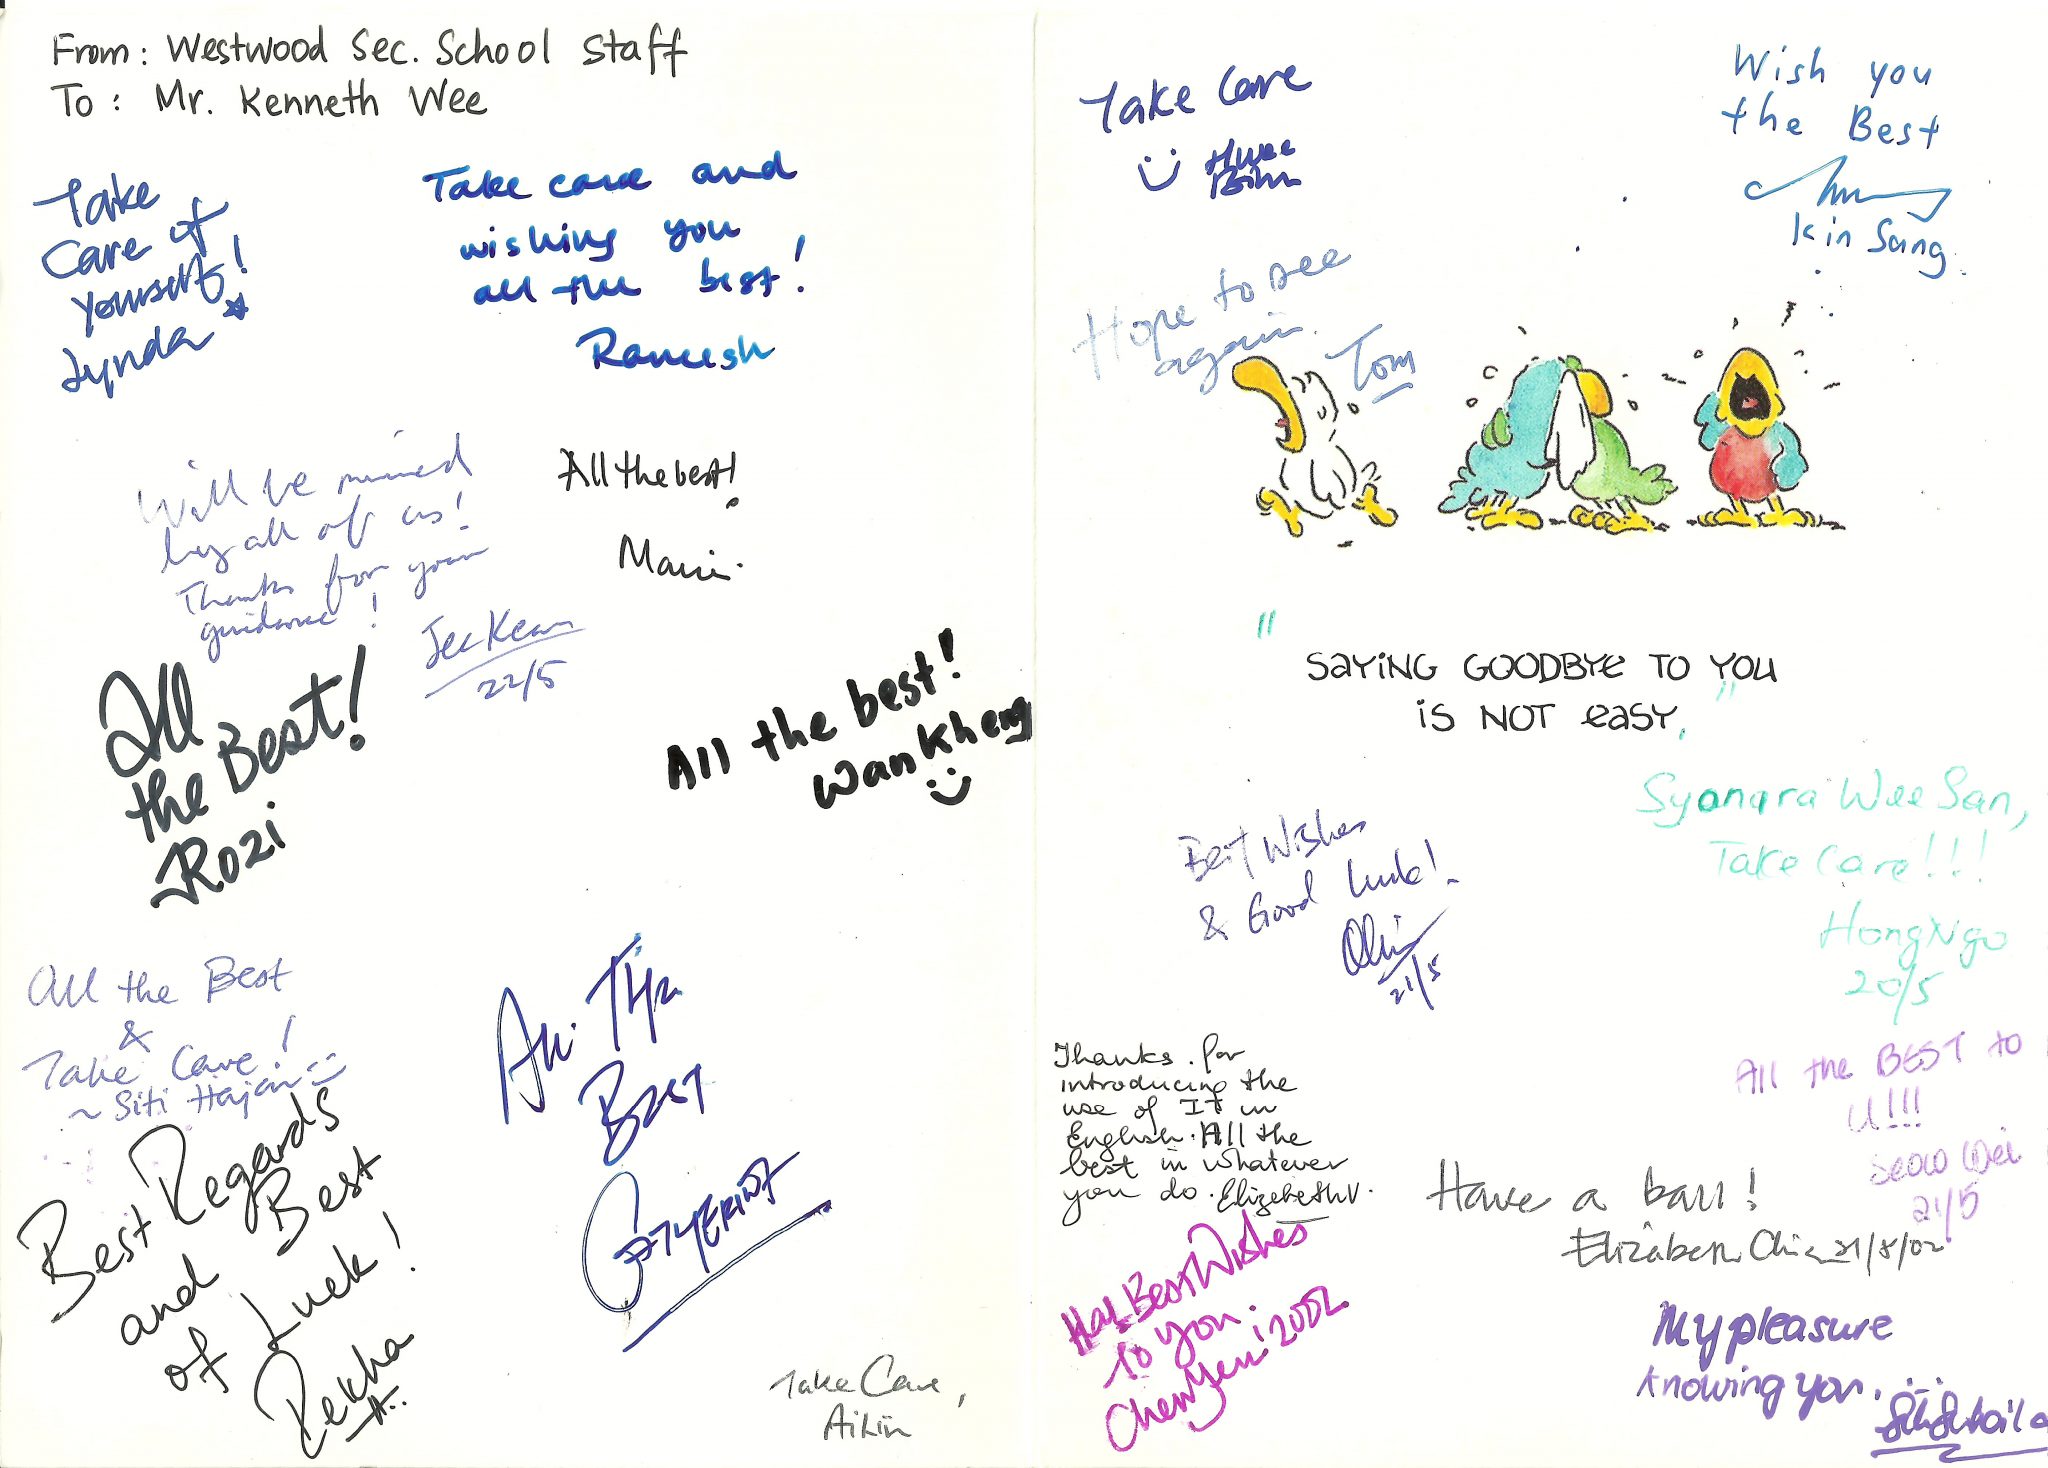 From: Westwood Sec. School Staff
To: Mr. Kenneth Wee
Take
Care of
Yourself!
Lynda
Take care and
wishing you
all the best!
Ramesh
Will be missed
by all of us!
Thanks for your
guidance!
Jee Kean
22/5
All the best!
All
the Best!
Rozi
All the best!
Wan Kheng
All the Best
&
Take Care!
~ Siti Hajar
Best Regards
and Best
of Luck!
Rekha
All The
Best
Catherine
Take Care,
Aikin
Take Care
Hwee
Wish you
the Best
Kin Sang
Hope to see
again.
Tom
"
SAYING GOODBYE TO YOU
IS NOT EASY.
"
Syonara Wee San,
Take Care!!!
HongNgo
20/5
Best Wishes
& Good Luck!
21/5
Thanks for
introducing the
use of IT in
English. All the
best in whatever
you do. Elizabeth V.
All the BEST to
U!!!
Seow Wei
21/5
Have a ball!
Elizabeth Chia 21/5/02
Best Wishes
to you
2002
My pleasure
knowing you.